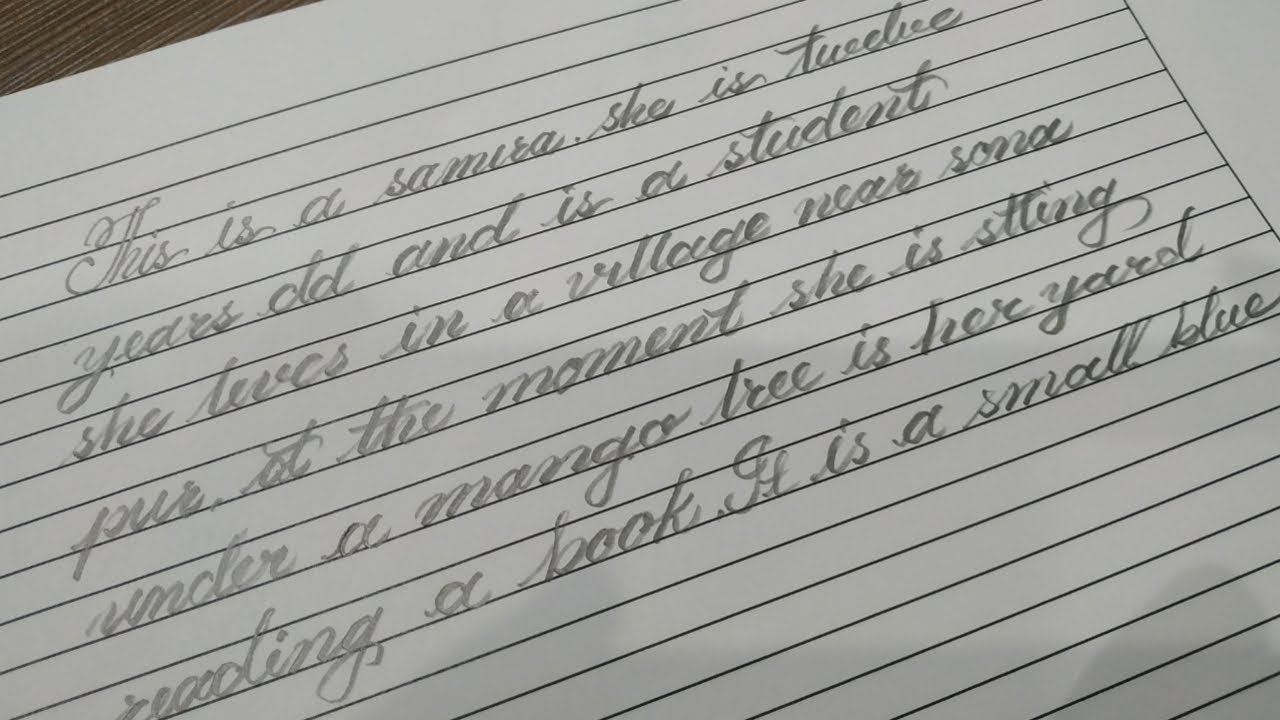 This is a samira. she is twelve
years old and is a student
she leves in a village near sona
pur. at the moment she is stting
under a mango tree is her yard
reading a book. It is a small blue